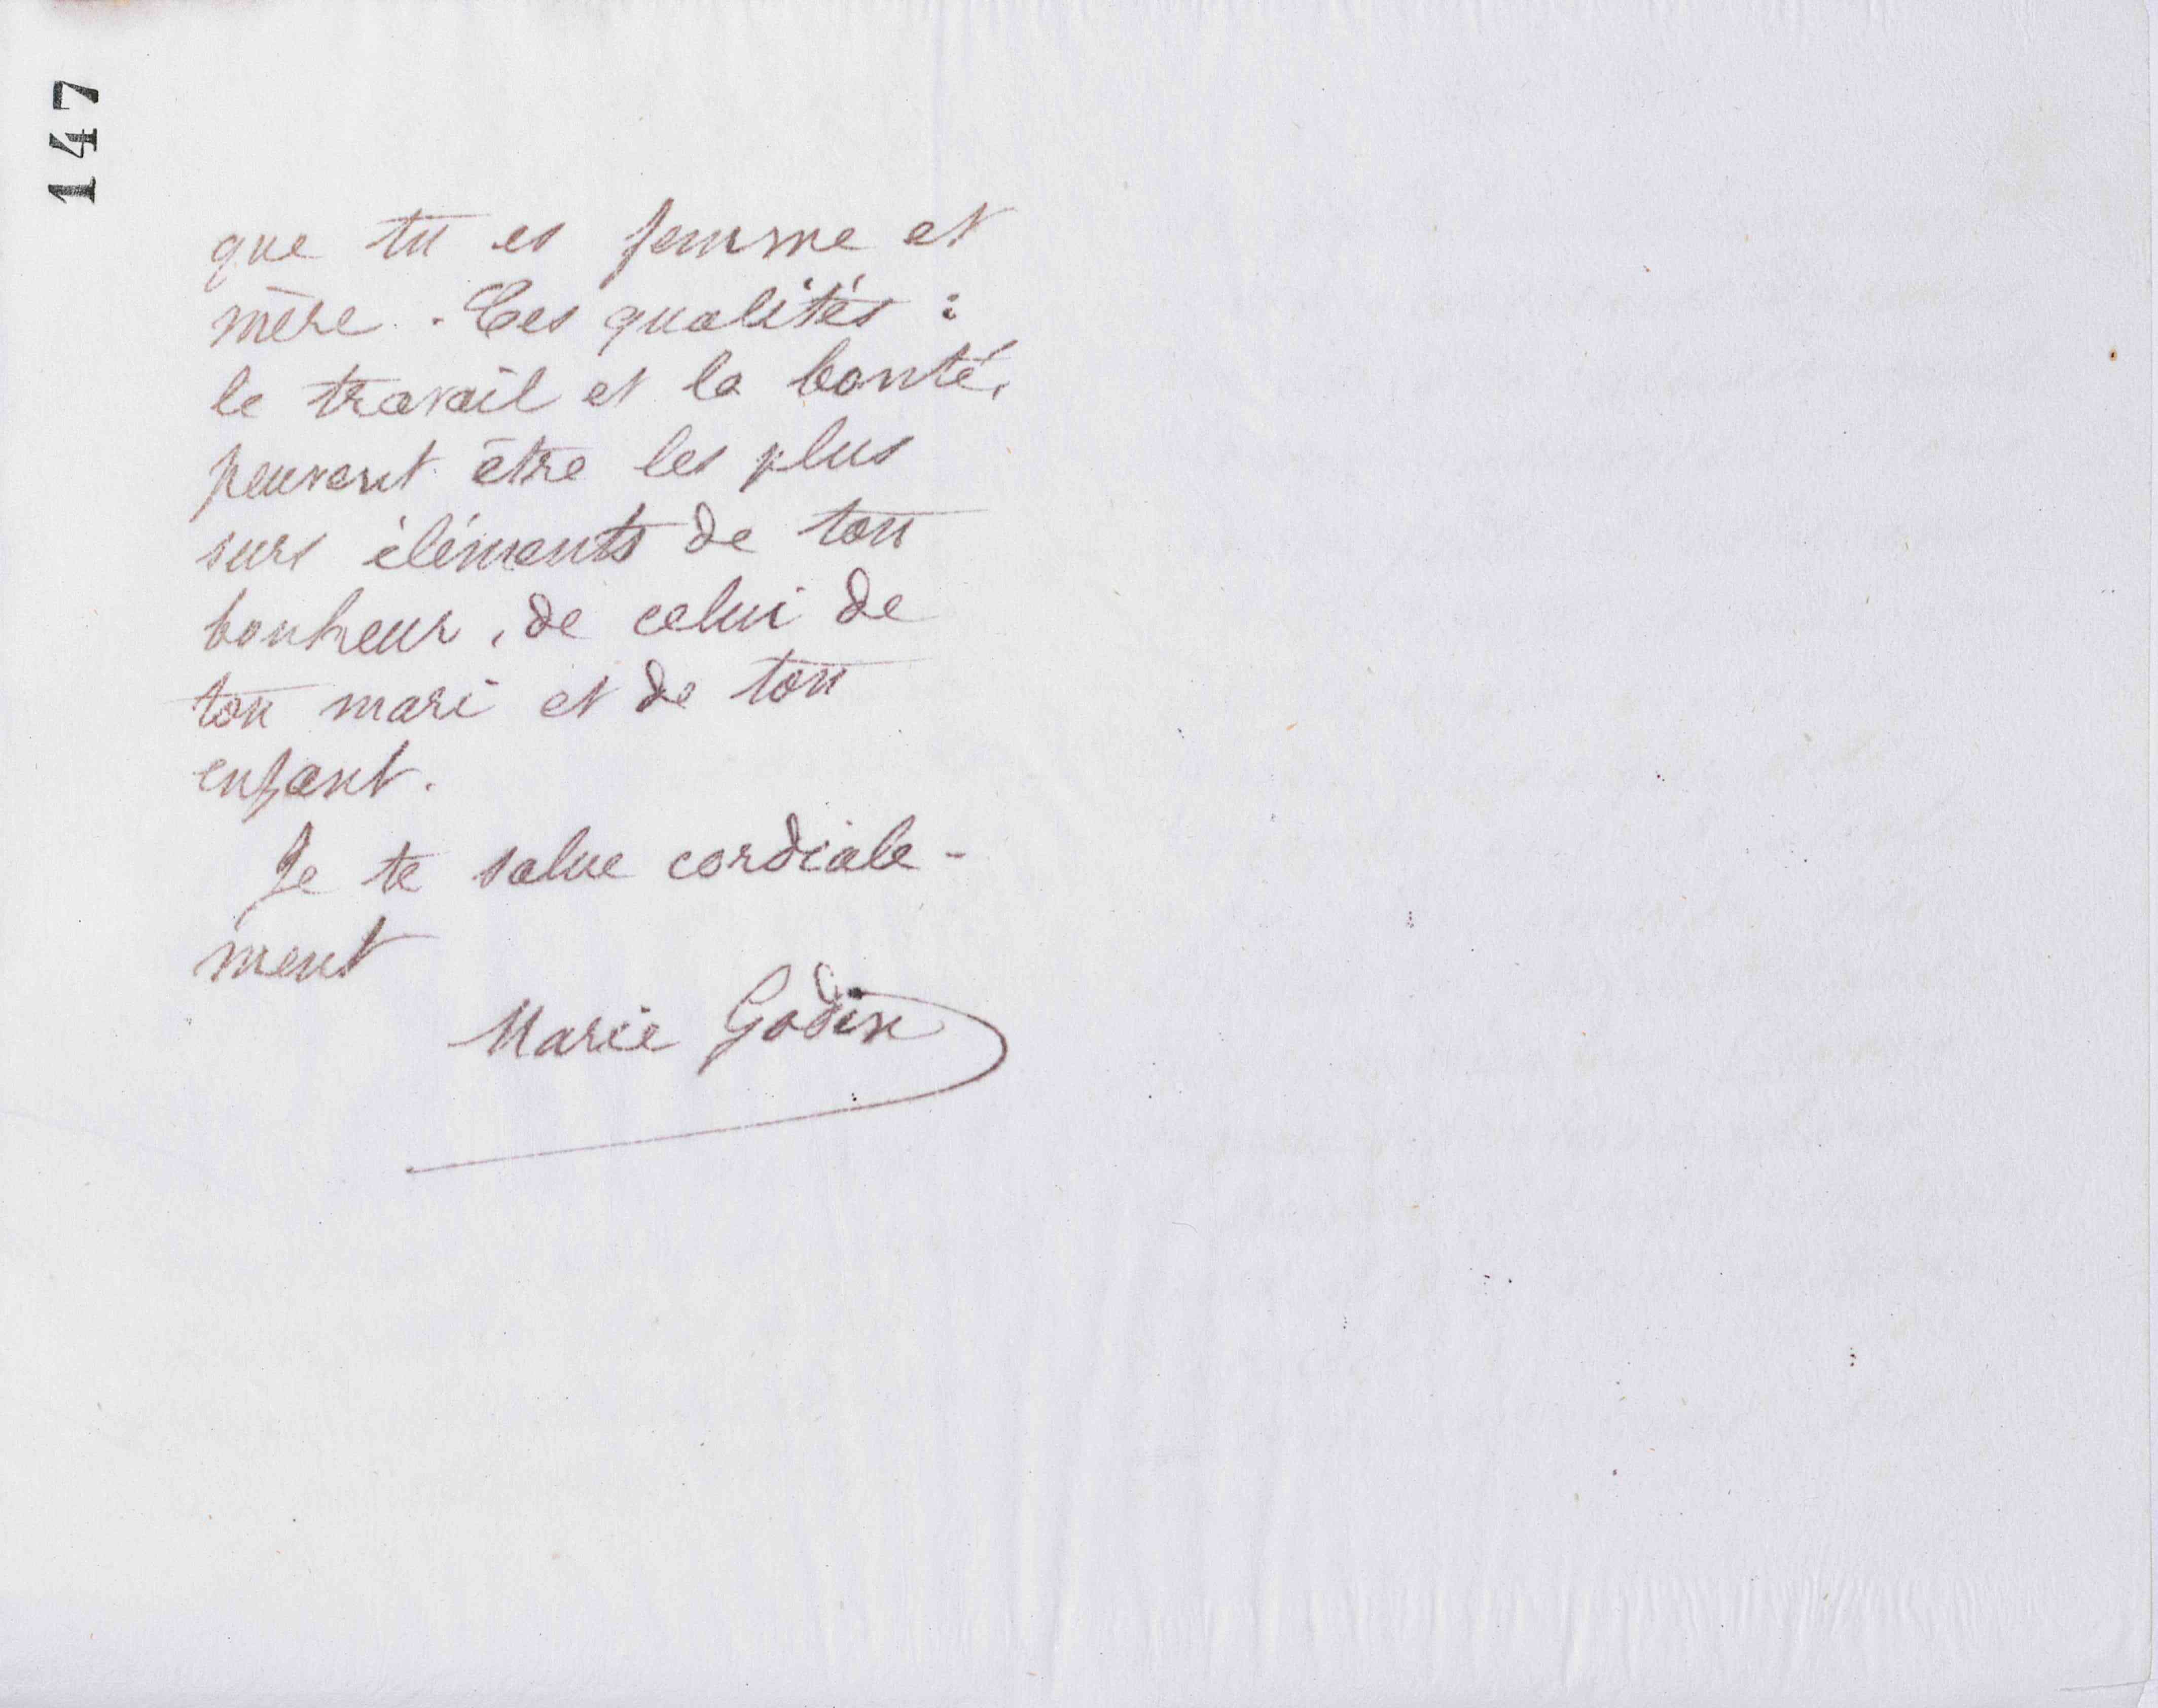 147
que tu es femme et
mère. - Ces qualités :
le travail et la bonté,
peuvent être les plus
surs éléments de ton
bonheur, de celui de
ton mari et de ton
enfant.
Je te salue cordiale-
ment
Marie Godin